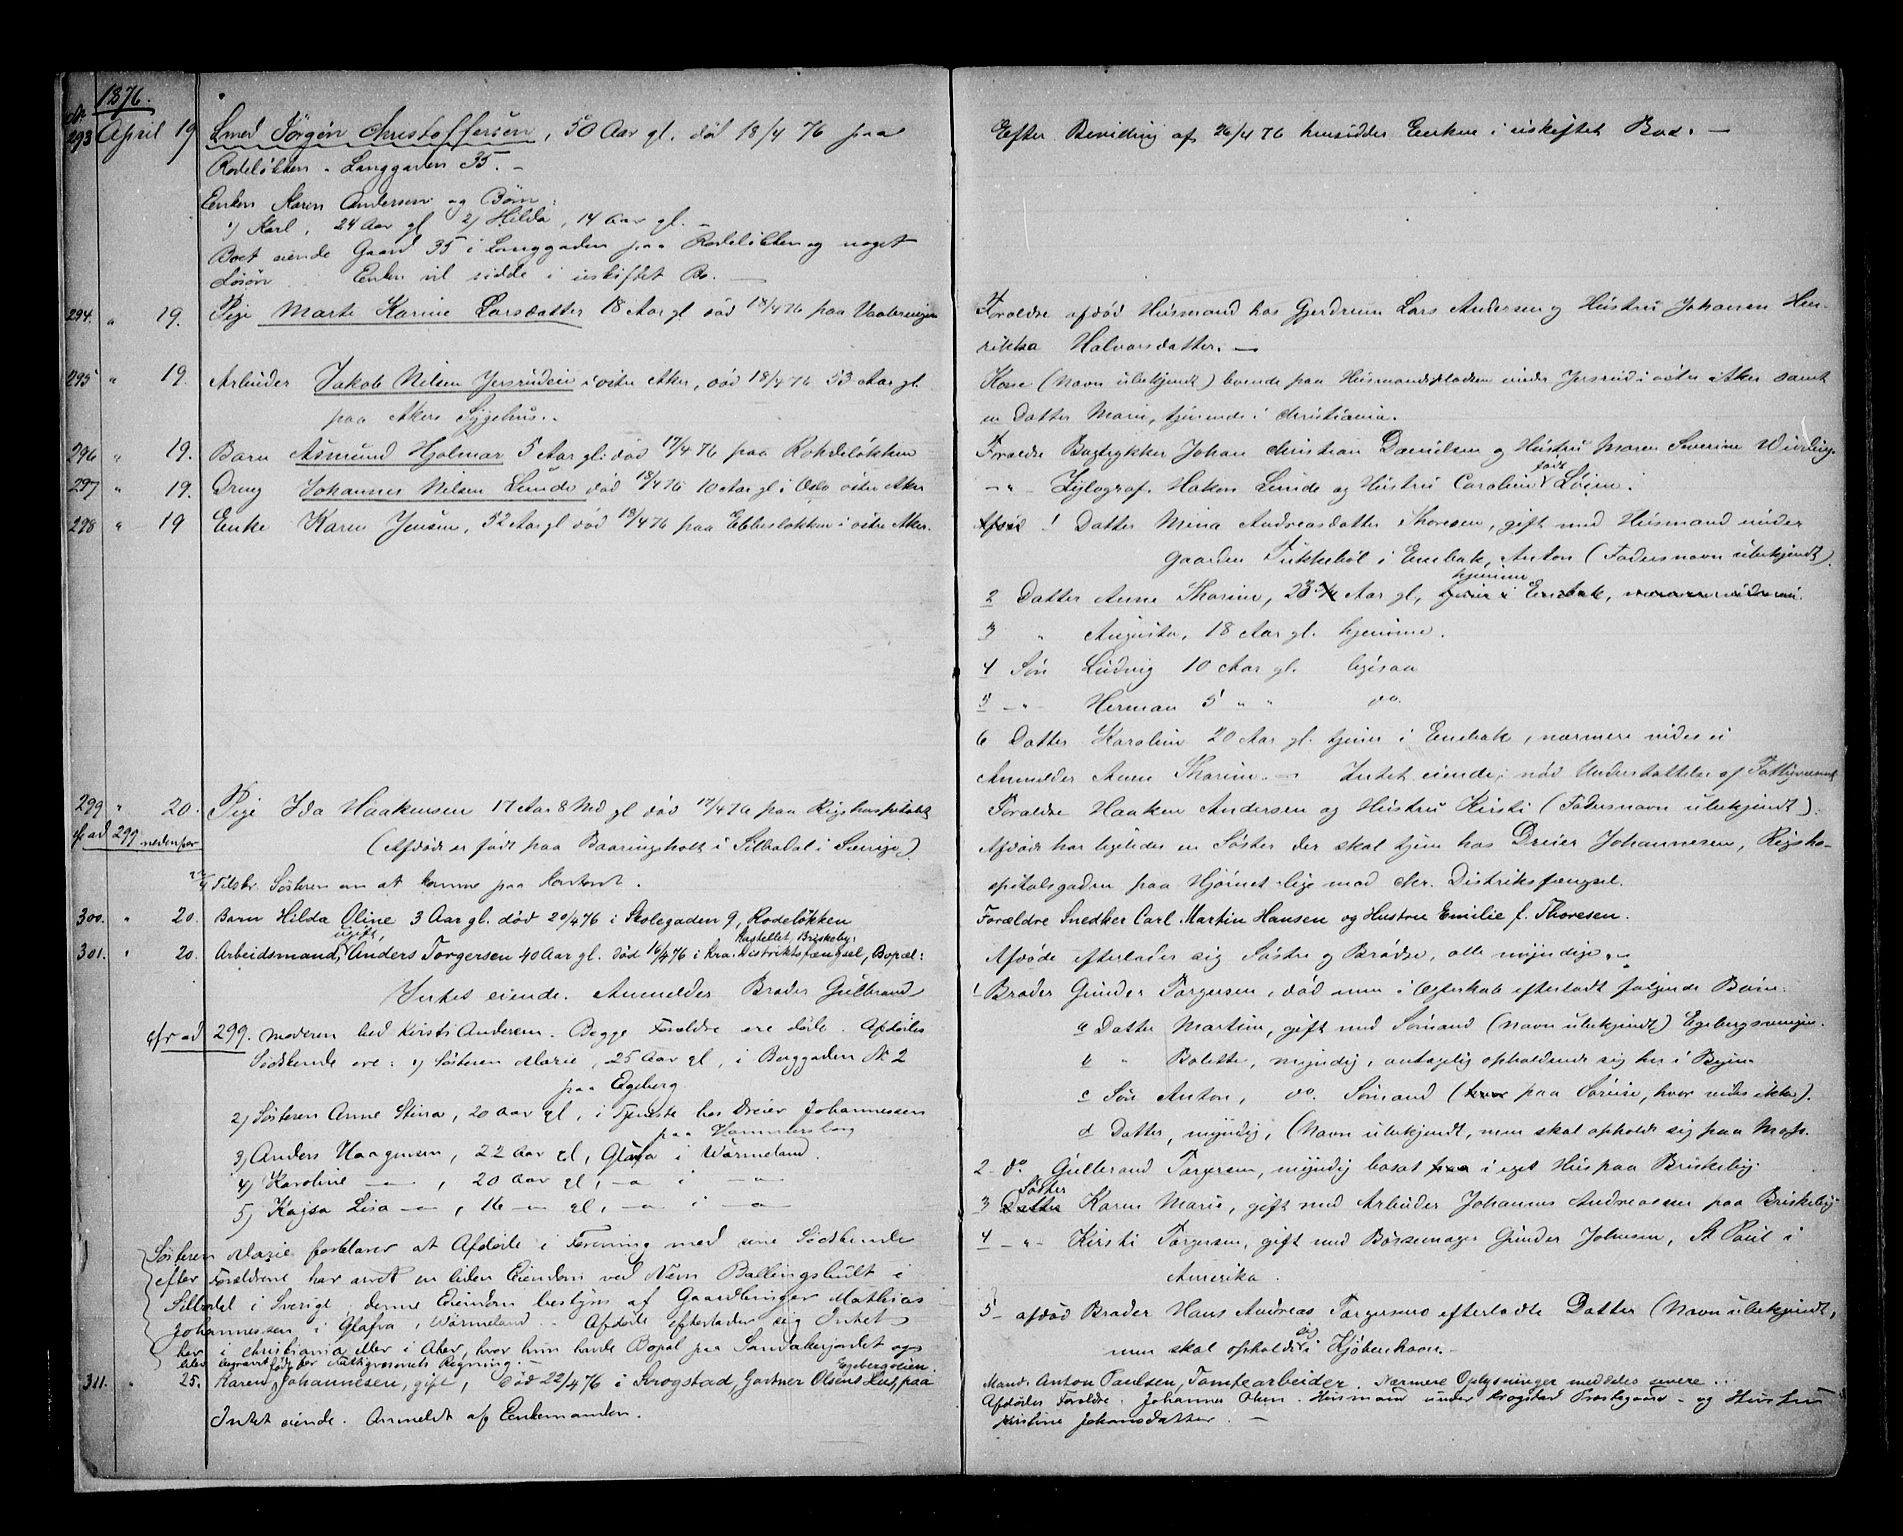 1876.
No.
293 April 19 Smed Jörgen Christoffersen, 50 Aar gl. död 18/4 76 paa
Rodelökken - Langgaden 35. -
Enken Karen Andersen og Börn:
1) Karl, 24 Aar gl 2) Hilda, 14 Aar gl. -
Boet eiende Gaard 35 i Langgaden paa Rodelökken og noget
Lösöre. Enken vil sidde i uskiftet Bo. -
294. " 19. Pige Marte Karine Larsdatter 18 Aar gl död 18/4 76 paa Vaalerengen
295 " 19. Arbeider Jakob Nilsen Jersrudeie i östre Aker, död 18/4 76 53 Aar gl.
paa Akers Sygehus.
296 " 19. Barn Asmund Hjalmar 5 Aar gl: död 17/4 76 paa Rohdelökken
297 " 19. Dreng Johannes Nilsen Lunde död 18/4 76 10 Aar gl i Oslo östre Aker
298 " 19 Enke Karen Jensen, 52 Aar gl död 13/4 76 paa Ebbeslökken i östre Aker.
299 " 20. Pige Ida Haakensen 17 Aar 8 Md gl död 17/4 76 paa Rigshospitalet
cfr ad 299 nedenfor
(Afdöde er födt paa Baaringsholt i Silbodal i Sverige)
Tilsbr. Söstren om at komme paa Kontoret.
300. " 20. Barn Hilda Oline 3 Aar gl. död 20/4 76 i Skolegaden 9, Rodelökken
ugift, Kastellet, Briskeby:
301. " 20. Arbeidsmand, Anders Torgersen 40 Aar gl. död 16/4 76 i Kra. Distriktsfængsel, Bopæl:
Intet eiende. Anmelder Broder Gulbrand
cfr ad 299. Moderen hed Kirsti Andersen. Begge Forældre ere döde. Afdödes
Södskende ere: 1) Sösteren Marie, 25 Aar gl, i Berggaden No 2
paa Egeberg.
2) Sösteren Anne Stina, 20 Aar gl, i Tjeneste hos Dreier Johannessen
paa Hammersborg
3) Anders Haagensen, 22 Aar gl, Glafva i Wärmeland.
4) Karoline - , 20 Aar gl, - i -
5) Kajsa Lisa - , 16 - gl, - i -
Sösteren Marie forklarer at Afdöde i Forening med sine Södskende
efter Forældrene har arvet en liden Eiendom ved Navn Ballingshult i
Silbodal i Sverige, denne Eiendom bestyres af Gaardbruger Mathias
Johannessen i Glafva, Wärmeland. - Afdöde efterlader sig Intet
her i Christiania eller i Aker, hvor hun havde Bopæl paa Sandakerjordet og
blev begravet for Fattigvæsenets Regning. -
Egebergveien.
311. " 25. Karen Johannesen, gift, död 22/4 76 i Krogstad, Gartner Olsens Hus, paa
Intet eiende. Anmeldt af Enkemanden.
Efter Bevilling af 26/4 76 hensidder Enken i uskiftet Bod. -
Forældre afdöd Husmand hos Gjerdrum Lars Andersen og Hustru Johanne Hen-
rikka Halvorsdatter. -
Kone (Navn ubekjendt) boende paa Husmandspladsen under Jersrud i östre Aker samt
en Datter Marie, tjenende i Christiania.
Forældre Bogtrykker Johan Christian Danielsen og Hustru Maren Severine Widding.
födt
-"- Xylograf. Hakon Lunde og Hustru Caroline Löken.
Afdöd 1 Datter Mina Andreasdatter Thoresen, gift med Husmand under
gaarden Tukkeböl i Enebak, Anton (Fadersnavn ubekjendt).
hjemme
2 Datter Anne Thorine, 23 Aar gl, tjener i Enebak,
3 " Augusta, 18 Aar gl. hjemme.
4 Sön Ludvig 10 Aar gl. ligesaa
5 -"- Herman 5 " " do.
6 Datter Karoline 20 Aar gl. tjener i Enebak, nærmere vides ei
Anmelder Anne Thorine. - Intet eiende; nöd Understöttelse af Fattigvæsenet
Forældre Haaken Andersen og Hustru Kirsti (Fadersnavn ubekjendt).
Afdöde har ligeledes en Söster der skal tjene hos Dreier Johannesen, Rigsho-
spitalsgaden paa Hjörnet lige mod Akr. Distriktsfængsel.
Forældre Snedker Carl Martin Hansen og Hustru Emilie f. Thoresen.
Afdöde efterlader sig Söstre og Brödre, alle myndige.
1 Broder Gunder Torgersen, död men i Ægteskab efterladt fölgende Börn:
a Datter Martine, gift med Sömand (Navn ubekjendt) Egebergveien.
b " Bolette, myndig, antagelig opholdende sig her i Byen
c Sön Anton, do. Sömand (paa Söreise, hvor vides ikke).
d Datter, myndig, (Navn ubekjendt, men skal opholde sig paa Moss.
2 - do Gulbrand Torgersen, myndig bosat paa i eget Hus paa Briskeby.
Söster
3 Datter Karen Marie, gift med Arbeider Johannes Andreassen paa Briskeby
4 -"- Kirsti Torgersen, gift med Börsemager Gunder Johnsen, St Paul i
Amerika.
5 - afdöd Broder Hans Andreas Torgersens efterladte Datter (Navn ubekjendt,
sig
men skal opholde i Kjöbenhavn. -
Mand: Anton Paulsen, Tomtearbeider. Nærmere Oplysninger meddeles senere.
Afdödes Forældre: Johannes Olsen. Husmand under Krogstad Prostegaard - og Hustru
Kristine Johansdatter. -